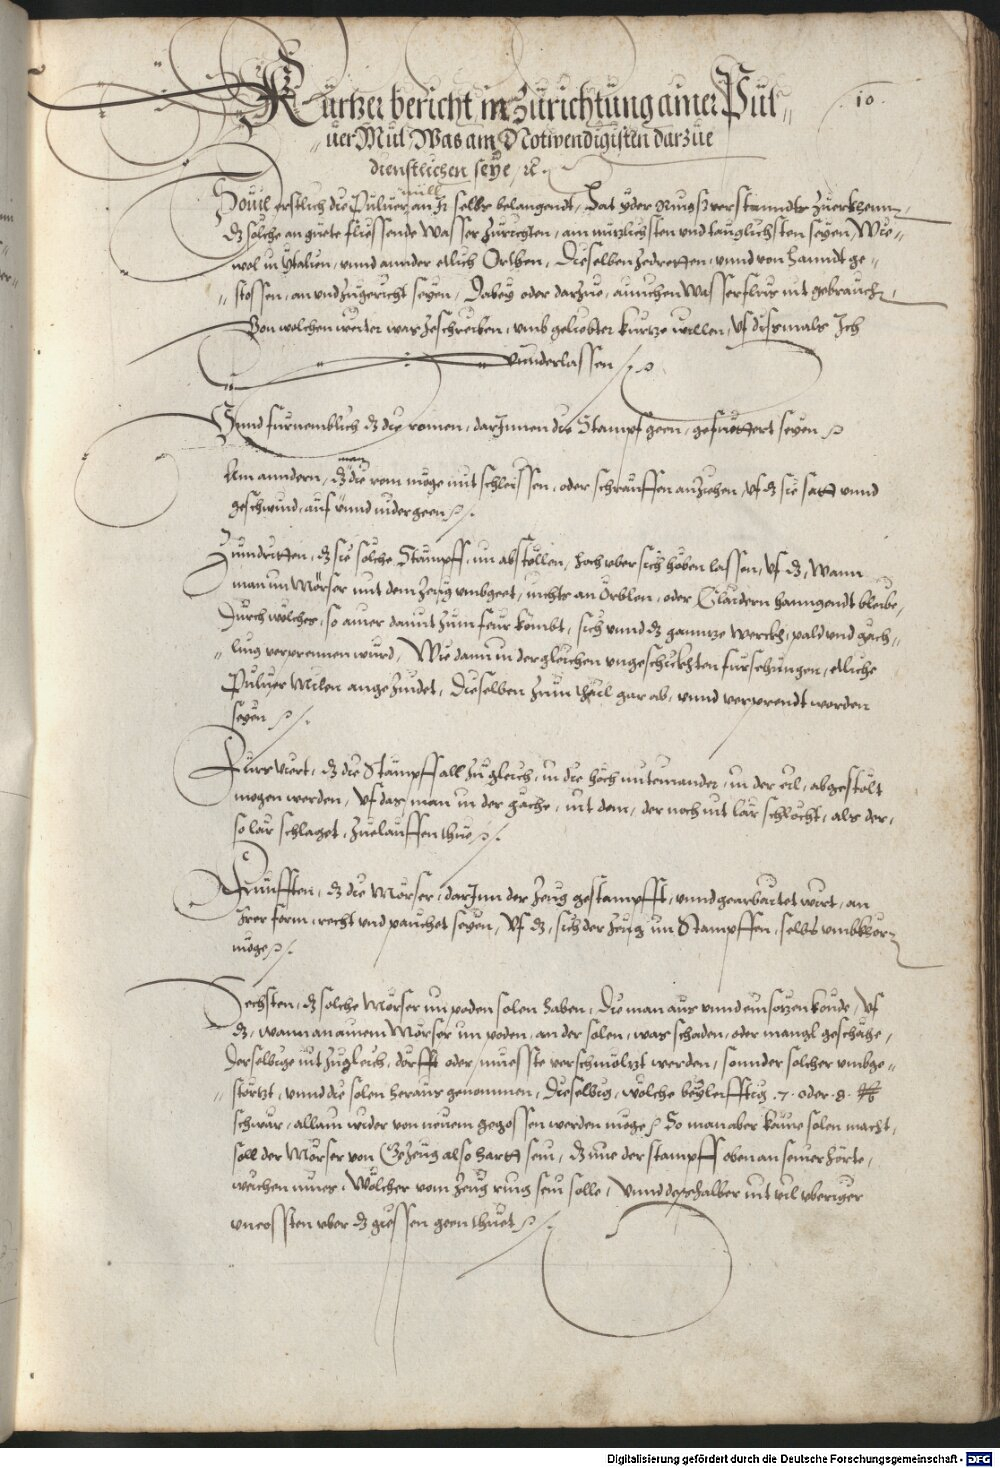 10.
Kurtzer bericht in Zurichtung ainer Pul„
„uer Mül Was am Notwendigisten darzue
dienstlichen seye, ꝛc.
Souil erstlich die Puluer müll an Ir selbs belangendt, Hat yder Rings verstanndts Zuerkhenn,
dz solche an guete fliessende Wasser Zurichten, am nutzlichsten und tauglichsten seyen, Wie„
wol in Ytalien, unnd annder etlich Orthen, Dieselben Zedretten, unnd von Hanndt ge„
„stossen, an und Zugericht seyen, Dabey oder darzue, auch en Wasserfluss nit gebraucht,
Von welchen weiter was Zeschreiben, umb geliebter kurtze willen, Uf dismals Ich
unnderlassen
Unnd furnemblich dz die romen, darInnen die Stampf geen, gefuettert seyen
Am anndern, dz man die rem möge mit schleissen, oder schrauffen anziehen, Uf dz sie satt unnd
geschwind, auf unnd nider geen
Zum dritten, dz sie solche Stampff, im abstöllen, hoch uber sich höben lassen, Uf dz, Wann
man im Mörser mit dem Zeug umbgeet, nichts an Örblen, oder Claidern hanngendt bleibe,
Durch wölches, so ainer damit Zum feur kombt, sich unnd dz ganntze werckh, pald und gäch„
„ling verprennen wurd, Wie dann in dergleichen ungeschickhten fursehungen, etliche
Puluer Mülen angezündet, Dieselben Zum thail gar ab, unnd verprendt worden
seyen
Furs viert, dz die Stampff all Zugleich, in die höch miteinander, in der eil, abgestölt
mogen werden, Uf das man in der gäche, mit dem, der noch nit lär schlecht, als der,
so lär schlaget, Zuelauffen thue
Zum fünfften, dz die Mörser, darInn der Zeug gestampfft, unnd gearbaitet wirt, an
Irer form, recht und pauchet seyen, Uf dz, sich der Zeug im Stampffen, selbs umbkhor„
möge
Sechsten, dz solche Mörser im poden solen haben, Die man aus unnd einsetzen konde, Uf
dz, wann an ainem Mörser im poden, an der solen, was schaden, oder mangl geschähe,
derselbige nit Zugleich, dörfft oder muesste verschmöltzt werden, sonnder solcher umbge„
„störtzt, unnd die solen heraus genommen, Dieselbig, wölche beyleifftig .7. oder .8. ℔
schwär, allain wider von neuem gegossen werden möge, So man aber kaine solen macht,
soll der Mörser von Gezeug also hartt sein, dz ime der stampff oben an seiner hörte,
weichen mues, Wölcher vom Zeug ring sein solle, Unnd deßhalber nit vil uberiger
uncossten uber dz giessen geen thuet
Digitalisierung gefördert durch die Deutsche Forschungsgemeinschaft - DFG